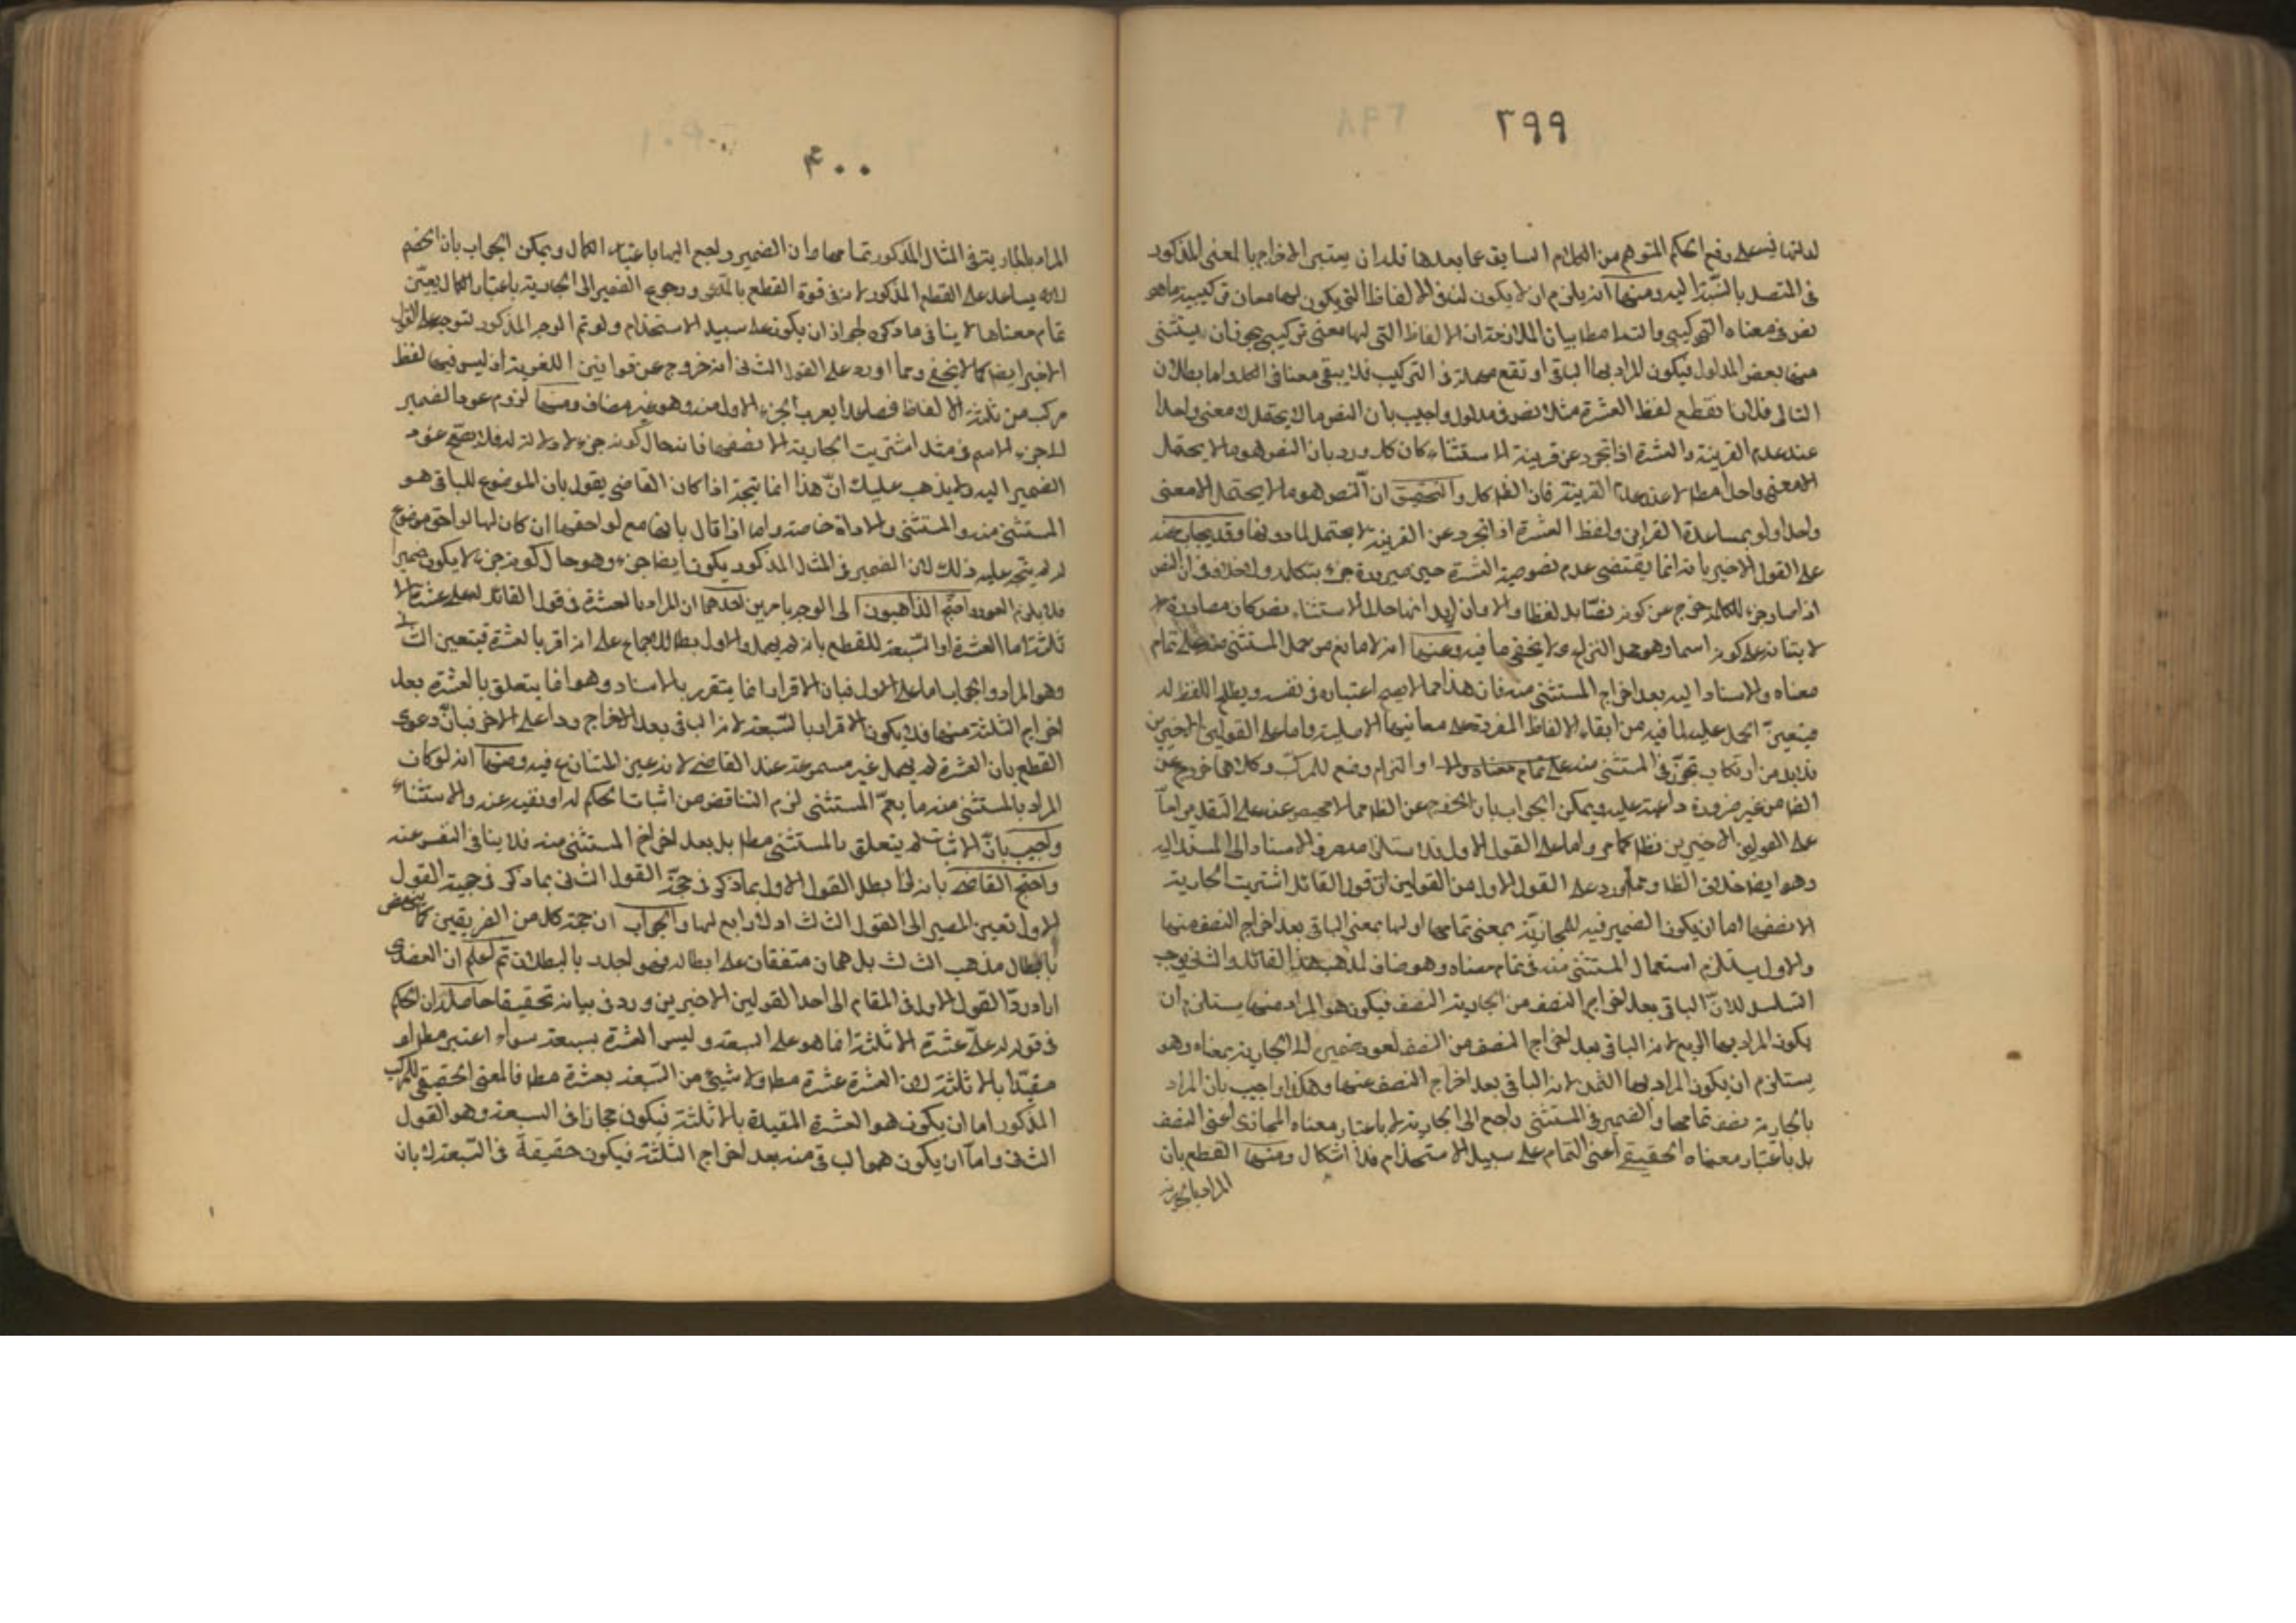 ٣٩٩
على رفع الحكم المتوهم من الكلام السابق عما بعدها فله ان يعتبر الاخراج بالمعنى المذكور
في المتصل بالنسبة اليه ومنها انه يلزم ان لا يكون لنا في الالفاظ التي يكون لها معان تركيبية ما هو
نص في معناه التركيبي والتـ بط بيان الملازمة ان الالفاظ التي لها معنى تركيبي يجوز ان يستثنى
منها بعض المدلول فيكون المراد بها الباقي او تقع مهملة في التركيب فلا يبقى معنا في الكل واما بطلان
التالى فلانا نقطع لفظ العشرة مثلا نص في مدلوله واجيب بان النص ما لا يحتمل الا معنى واحدا
عند عدم القرينة والعشرة اذا تجرد عن قرينة الاستثناء كان كك ورد بان النص هو ما لا يحتمل
الا معنى واحدا مطلقا لا عند عدم القرينة فان الظاهر كك والتحقيق ان النص هو ما لا يحتمل الا معنى
واحدا ولو بمساعدة القراين ولفظ العشرة اذا تجرد عن القرينة لا يحتمل لما دونها وقد يجاب عنه
على القول الاخير بانه انما يقتضى عدم نصوصية العشرة حين صيرورة جزء بتكلم ولا خلاف في ان النص
اذا صار جزء للكلمة خرج عن كونه نصا بل لفظا والا وان اريد انها حال الاستثناء نص كان مصادرة
لابتنائه على كونه اسما وهو محل النزاع ولا يخفى ما فيه ومنها انه لا مانع من حمل المستثنى منه على تمام
معناه والاسناد اليه بعد اخراج المستثنى منه فان هذا مما لا يصح اعتباره في نفسه ويظهر اللفظ له
فيتعين الحمل عليه لما فيه من ابقاء الالفاظ المفردة على معانيها الاصلية واما على القولين الاخيرين
فلا بد من ارتكاب تجوز في المستثنى منه او التزام وضع للمركب وكلاهما خروج عن
الظاهر من غير ضرورة داعية عليه ويمكن الجواب بان الخروج عن الظاهر مما لا محيص عنه على التقديرين اما
على القولين الاخيرين فظاهر كما مر واما على القول الاول فلاستلزامه صرف الاسناد الى المسند اليه
وهو ايضا خلاف الظاهر ومما اورد على القول الاول من القولين ان قول القائل اشتريت الجارية
الا نصفها اما ان يكون الضمير فيه للجارية بمعنى تمامها او لها بمعنى الباقي بعد اخراج النصف منها
والاول يستلزم استعمال المستثنى منه في تمام معناه وهو مناف لمذهب هذا القائل والثاني يوجب
التسلسل لان الباقي بعد اخراج النصف من الجارية النصف فيكون هو المراد منها يستلزم ان
يكون المراد بها الربع لانه الباقي بعد اخراج النصف من النصف لعود ضمير الى الجارية بمعناه وهو
يستلزم ان يكون المراد بها الثمن لانه الباقي بعد اخراج النصف عنها وهكذا واجيب بان المراد
بالجارية نصف تمامها والضمير في المستثنى راجع الى الجارية لا باعتبار معناه المجازى اعنى النصف
بل باعتبار معناه الحقيقي اعنى التمام على سبيل الاستخدام فلا اشكال ومنها القطع بان
المراد بالجارية
٤٠٠
المراد بالجارية في المثال المذكور تمامها وان الضمير راجع اليها باعتبار الكمال ويمكن الجواب بان الخصم
لا يساعد على القطع المذكور لانه في قوة القطع بالمدعى ورجوع الضمير الى الجارية باعتبار الكمال يعنى
تمام معناها لا ينافى ما ذكره لجواز ان يكون على سبيل الاستخدام ولو تم الوجه المذكور لتوجه على القول
الاخير ايضا كما لا يخفى ومما اورد على القول الثاني انه خروج عن قوانين اللغوية اذ ليس فيها لفظ
مركب من ثلثة الالفاظ فصاعدا يعرب الجزء الاول منه وهو غير مضاف ومنها لزوم عود الضمير
الى جزء الاسم في مثل اشتريت الجارية الا نصفها فانه حال كونه جزء لا دلالة له فلا يصح عود
الضمير اليه ولا يذهب عليك ان هذا انما يتجه اذا كان القاضي يقول بان الموضوع للباقى هو
المستثنى منه والمستثنى والاداة خاصة واما اذا قال بانها مع لواحقها ان كان لها لواحق موضوع
له لم يتجه عليه ذلك لان الضمير في المثال المذكور يكون ايضا جزء وهو حال كونه جزء لا يكون ضميرا
فلا يلزم العود احتج الذاهبون الى الوجه بامرين احدهما ان المراد بالعشرة في قول القائل له على عشرة الا
ثلثة اما العشرة او السبعة للقطع بانه لم يهمل والاول بط للاجماع على انه اقر بالعشرة فيتعين الثانى
وهو المراد والجواب اما على الاول فبان الاقرار انما يتقرر بالاسناد وهو انما يتعلق بالعشرة بعد
اخراج الثلثة منها فلا يكون الاقرار بالسبعة لانه الباقى بعد الاخراج واما على الاخر فبان دعوى
القطع بان العشرة لم يهمل غير مسموعة عند القاضي لانه عين المتنازع فيه ومنها انه لو كان
المراد بالمستثنى منه ما يعم المستثنى لزم التناقض من اثبات الحكم له او نفيه عنه والاستثناء
واجيب بان الاثبات لم يتعلق بالمستثنى مطلقا بل بعد اخراج المستثنى منه فلا ينافى النفى عنه
واحتج القاضي بانه لما بطل القول الاول بما ذكر في حجة القول الثاني بما ذكر في حجية القول
الاول تعين المصير الى القول الثالث اذ لا رابع لهما والجواب ان حجة كل من الفريقين
بابطال مذهب الثالث بل هما متفقان على ابطاله فهو اجدر بالبطلان ثم اعلم ان العضدى
اراد رد القول الاول في المقام الى احد القولين الاخيرين ورد في بيانه تحقيقا حاصله ان الحكم
في قوله له على عشرة الا ثلثة انما هو على السبعة وليس العشرة بسبعة سواء اعتبر مطلقا او
مقيدا بالا ثلثة لان العشرة عشرة مطلقا ولا شيئ من السبعة بعشرة مطلقا فالمعنى الحقيقي للمركب
المذكور اما ان يكون هو العشرة المقيدة بالا ثلثة فيكون مجازا في السبعة وهو القول
الثانى واما ان يكون هو الباقى منه بعد اخراج الثلثة فيكون حقيقة في السبعة لا بان